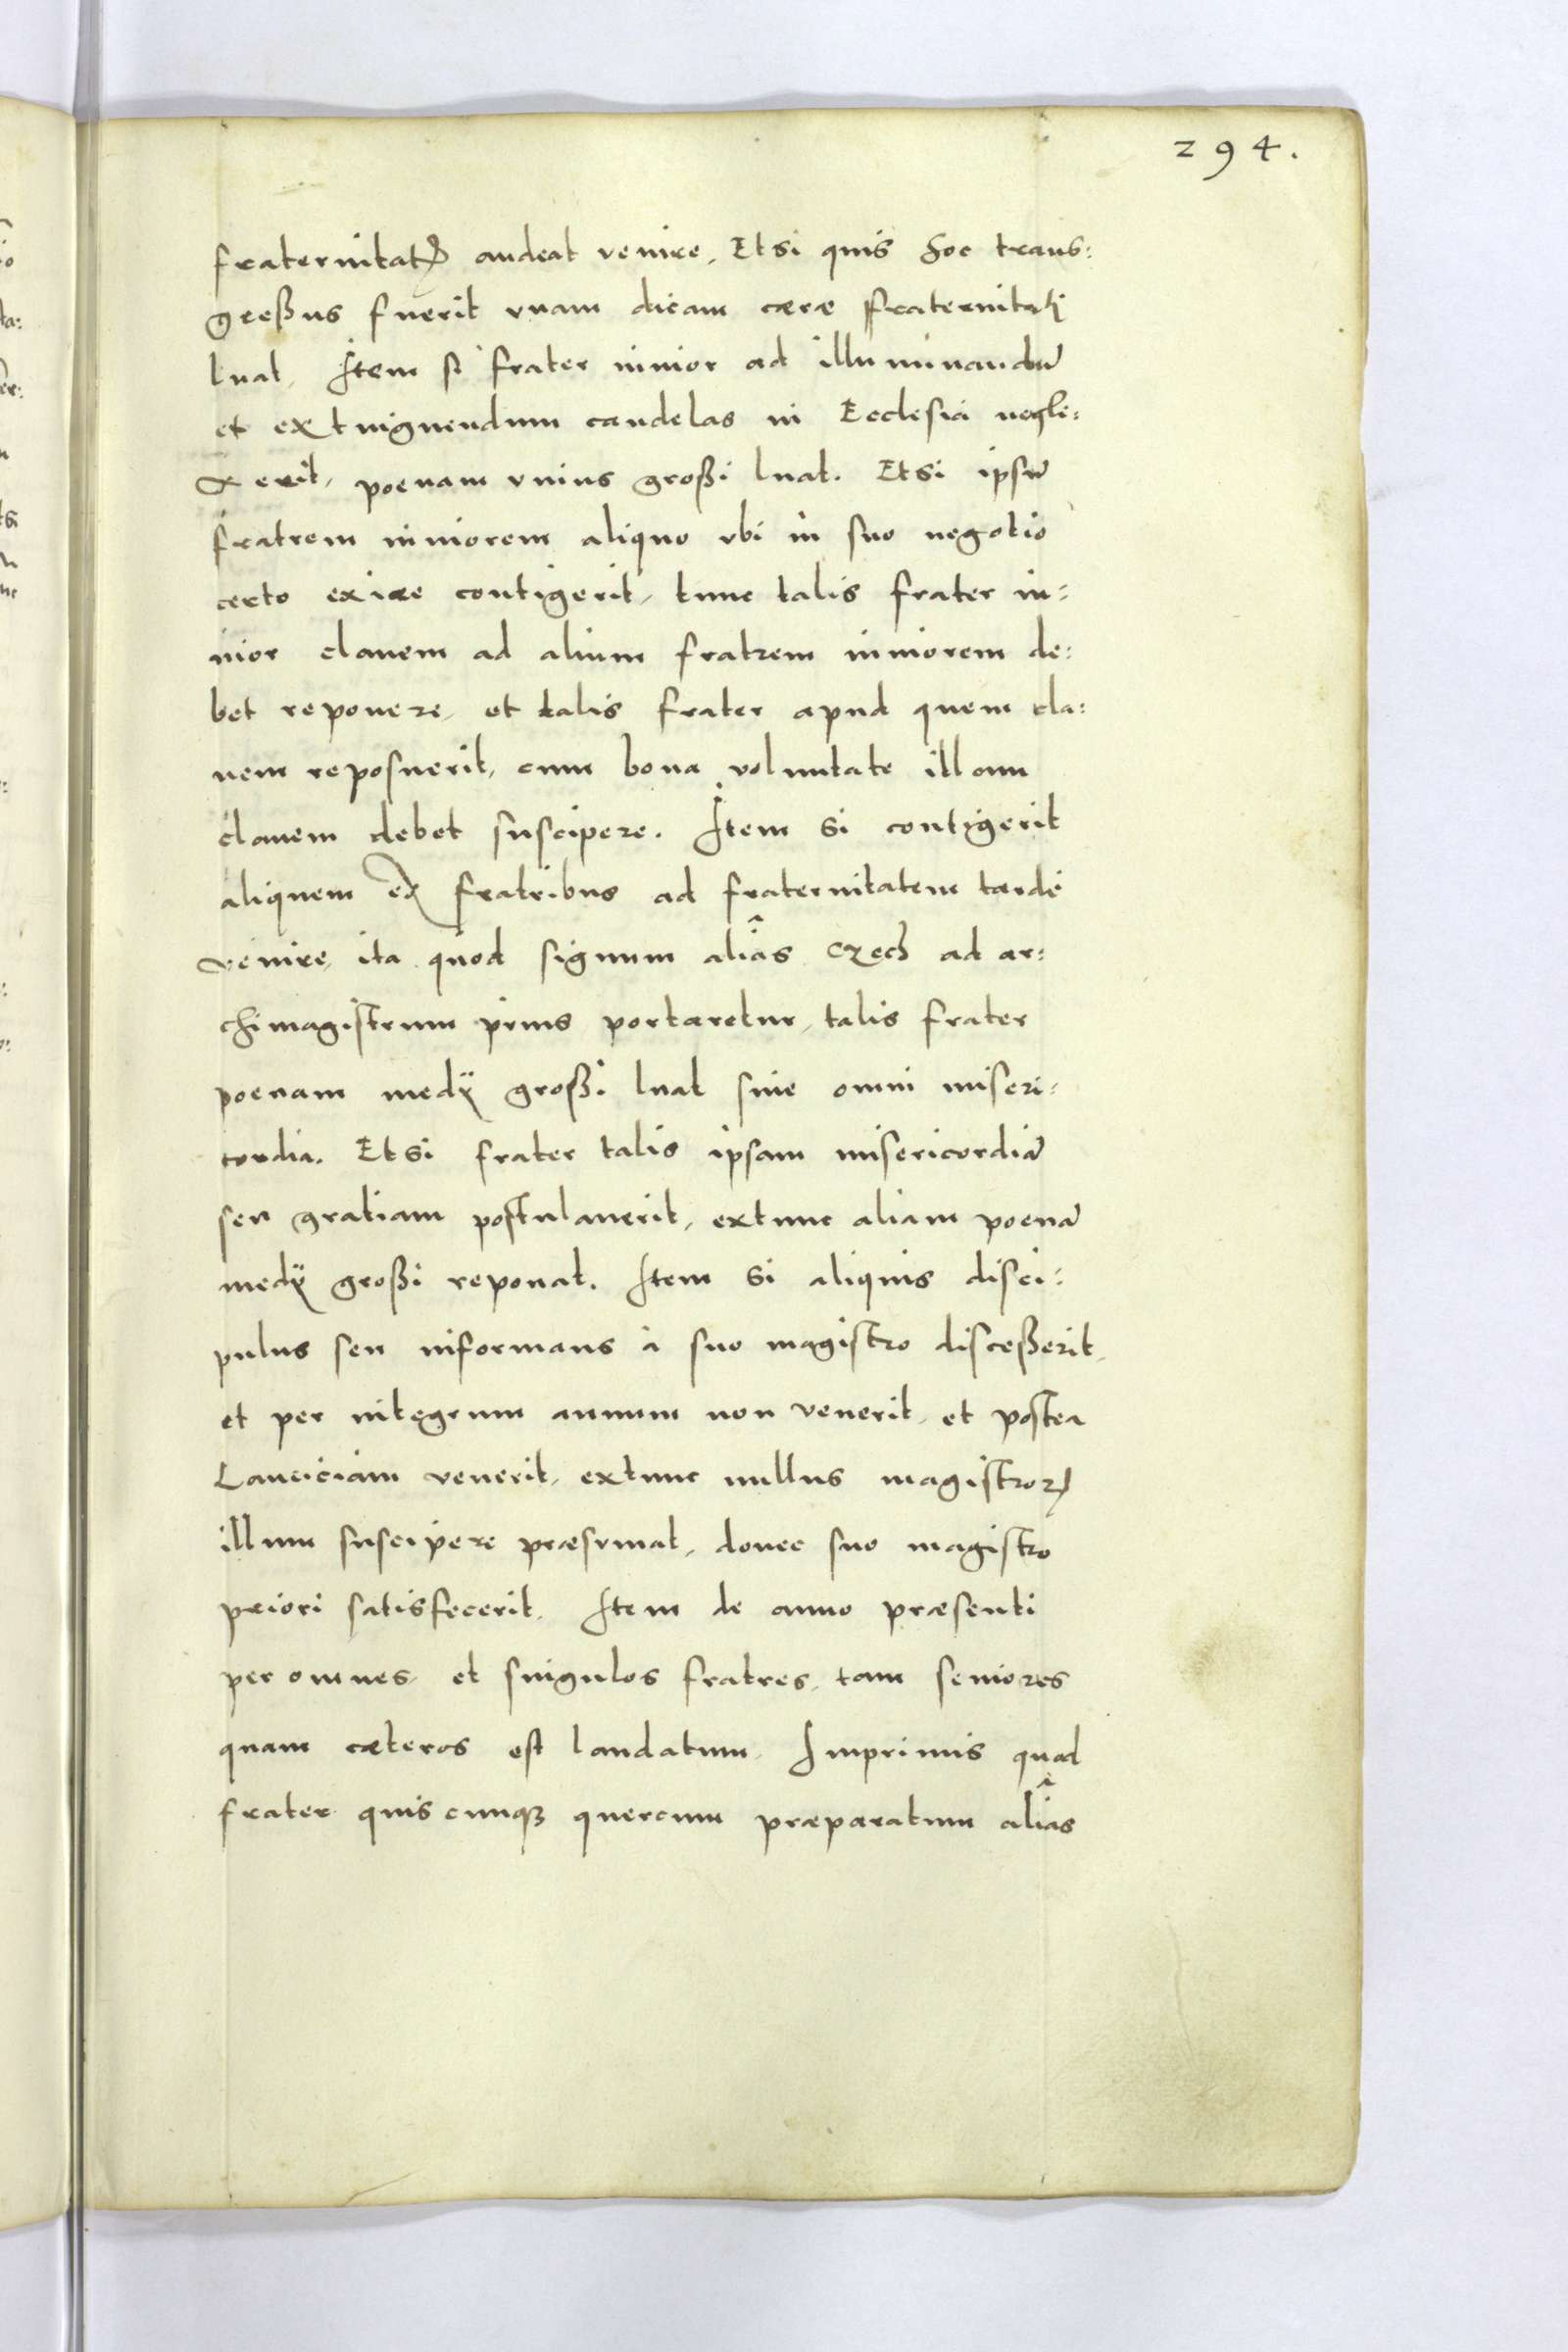 294.
fraternitatꝭ audeat venire, Et si quis hoc trans:
greßus fuerit vnam dicam ceræ fraternitati
luat, Item si frater iunior ad illuminandũ
et extinguendum candelas in Ecclesia negle:
xerit, poenam vnius großi luat. Et si ipsũ
fratrem iuniorem aliquo vbi in suo negotio
certo exire contigerit, tunc talis frater iu:
nior clauem ad alium fratrem iuniorem de:
bet reponere, et talis frater apud quem cla:
uem reposuerit, cum bona voluntate illam
clauem debet suscipere. Item si contigerit
aliquem ex fratribus ad fraternitatem tarde
venire, ita quod signum aliâs Czech ad ar:
chimagistrum prius portaretur, talis frater
poenam medÿ großi luat sine omni miseri:
cordia. Et si frater talis ipsam misericordiã
seu gratiam postulauerit, extunc aliam poenã
medÿ großi reponat. Item si aliquis disci:
pulus seu informans à suo magistro disceßerit,
et per integrum annum non venerit, et postea
Lanciciam venerit, extunc nullus magistroꝝ
illum suscipere præsumat, donec suo magistro
priori satisfecerit. Item de anno præsenti
per omnes, et singulos fratres, tam seniores
quam cæteros est laudatum. Imprimis quod
frater quiscunqꝫ quercum præparatum aliâs